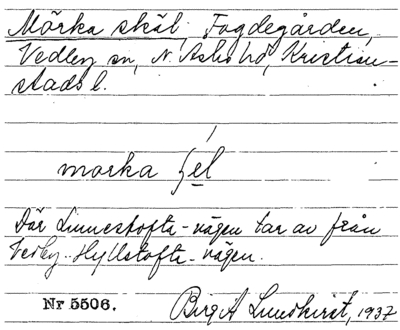 Mörka skäl, Fogdegården,
Vedby sn, N. Åsbo hd, Kristian-
stads l.
morka ʃel
Där Linnestofta-vägen tar av från
Vedby-Hyllstofta-vägen.
Nr 5506.
Birgit Lundkvist, 1937